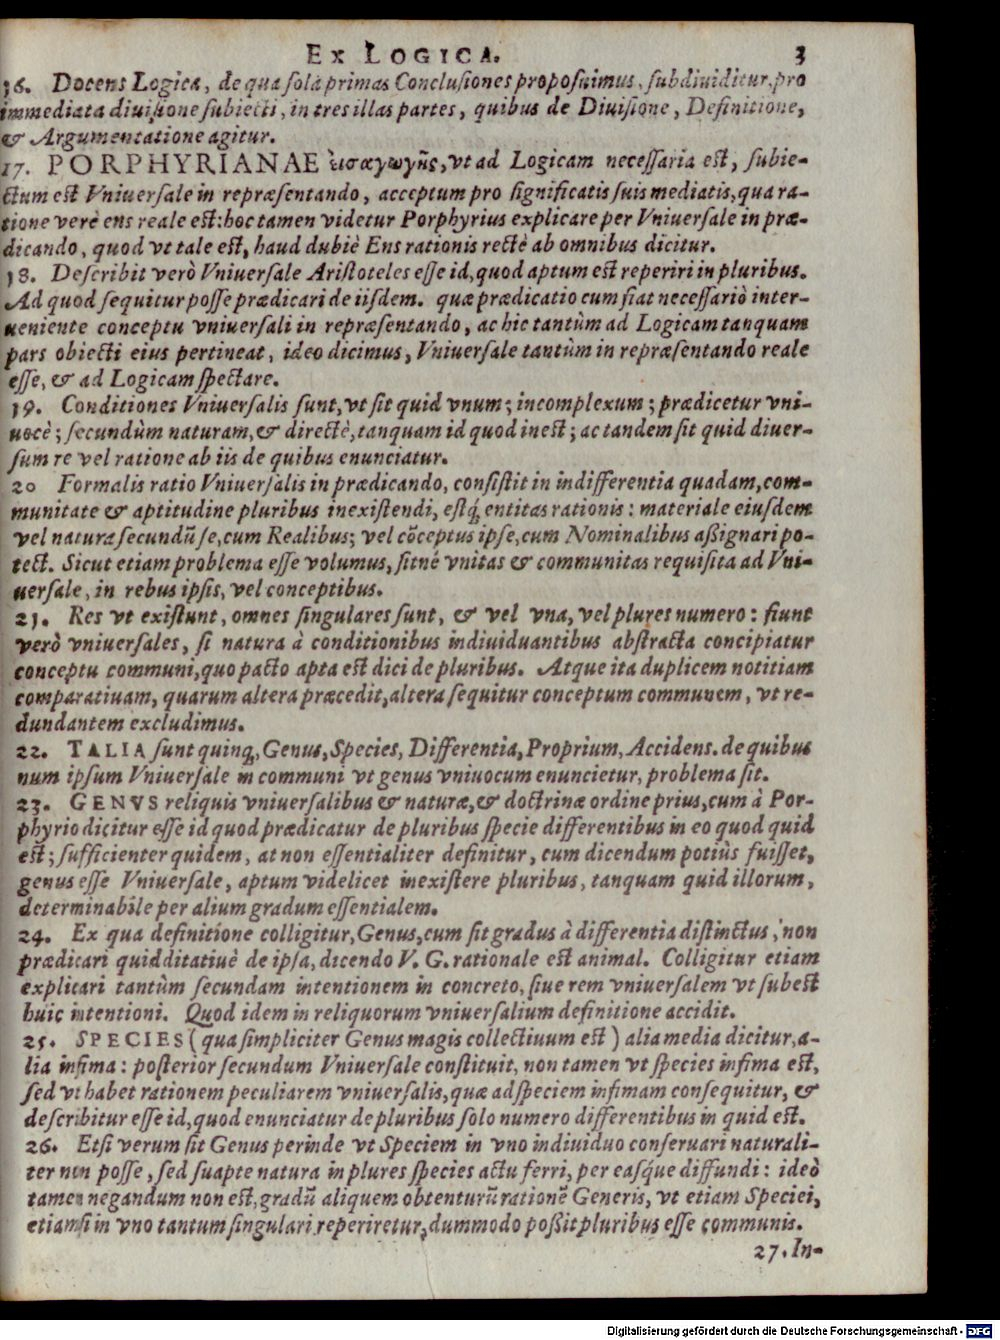 EX LOGICA. 3
16. Docens Logica, de qua sola primas Conclusiones proposuimus, subdiuiditur, pro
immediata diuisione subiecti, in tres illas partes, quibus de Diuisione, Definitione,
& Argumentatione agitur.
17. PORPHYRIANAE εἰσαγωγῆς, vt ad Logicam necessaria est, subie-
ctum est Vniuersale in repræsentando, acceptum pro significatis suis mediatis, qua ra-
tione verè ens reale est: hoc tamen videtur Porphyrius explicare per Vniuersale in præ-
dicando, quod vt tale est, haud dubiè Ens rationis rectè ab omnibus dicitur.
18. Describit verò Vniuersale Aristoteles esse id, quod aptum est reperiri in pluribus.
Ad quod sequitur posse prædicari de iisdem. quæ prædicatio cum fiat necessariò inter-
ueniente conceptu vniuersali in repræsentando, ac hic tantùm ad Logicam tanquam
pars obiecti eius pertineat, ideo dicimus, Vniuersale tantùm in repræsentando reale
esse, & ad Logicam spectare.
19. Conditiones Vniuersalis sunt, vt sit quid vnum; incomplexum; prædicetur vni-
uocè; secundùm naturam, & directè, tanquam id quod inest; ac tandem sit quid diuer-
sum re vel ratione ab iis de quibus enunciatur.
20 Formalis ratio Vniuersalis in prædicando, consistit in indifferentia quadam, com-
munitate & aptitudine pluribus inexistendi, estq́; entitas rationis: materiale eiusdem
vel natura secundū se, cum Realibus; vel cōceptus ipse, cum Nominalibus assignari po-
test. Sicut etiam problema esse volumus, sitné vnitas & communitas requisita ad Vni-
uersale, in rebus ipsis, vel conceptibus.
21. Res vt existunt, omnes singulares sunt, & vel vna, vel plures numero: fiunt
verò vniuersales, si natura à conditionibus indiuiduantibus abstracta concipiatur
conceptu communi, quo pacto apta est dici de pluribus. Atque ita duplicem notitiam
comparatiuam, quarum altera præcedit, altera sequitur conceptum communem, vt re-
dundantem excludimus.
22. TALIA sunt quinq, Genus, Species, Differentia, Proprium, Accidens. de quibus
num ipsum Vniuersale in communi vt genus vniuocum enuncietur, problema sit.
23. GENVS reliquis vniuersalibus & naturæ, & doctrinæ ordine prius, cum à Por-
phyrio dicitur esse id quod prædicatur de pluribus specie differentibus in eo quod quid
est; sufficienter quidem, at non essentialiter definitur, cum dicendum potiùs fuisset,
genus esse Vniuersale, aptum videlicet inexistere pluribus, tanquam quid illorum,
determinabile per alium gradum essentialem.
24. Ex qua definitione colligitur, Genus, cum sit gradus à differentia distinctus, non
prædicari quidditatiuè de ipsa, dicendo V. G. rationale est animal. Colligitur etiam
explicari tantùm secundam intentionem in concreto, siue rem vniuersalem vt subest
huic intentioni. Quod idem in reliquorum vniuersalium definitione accidit.
25. SPECIES (qua simpliciter Genus magis collectiuum est) alia media dicitur, a-
lia infima: posterior secundum Vniuersale constituit, non tamen vt species infima est,
sed vt habet rationem peculiarem vniuersalis, quæ ad speciem infimam consequitur, &
describitur esse id, quod enunciatur de pluribus solo numero differentibus in quid est.
26. Etsi verum sit Genus perinde vt Speciem in vno indiuiduo conseruari naturali-
ter non posse, sed suapte natura in plures species actu ferri, per easq́ue diffundi: ideò
tamen negandum non est, gradū aliquem obtenturū rationē Generis, vt etiam Speciei,
etiamsi in vno tantum singulari reperiretur, dummodo possit pluribus esse communis.
27. In-
Digitalisierung gefördert durch die Deutsche Forschungsgemeinschaft - DFG